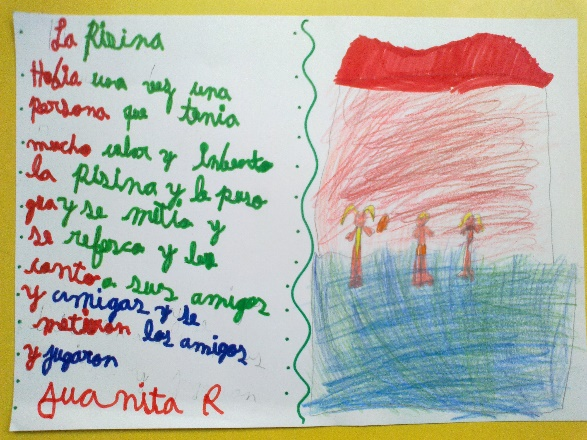 La Pisina
Había una vez una
persona que tenia
mucho calor y Inbento
la Pisina y le puso
gua y se metio y
se refesco y les
canto a sus amigos
y amigas y se
metieron los amigos
y jugaron
Juanita R